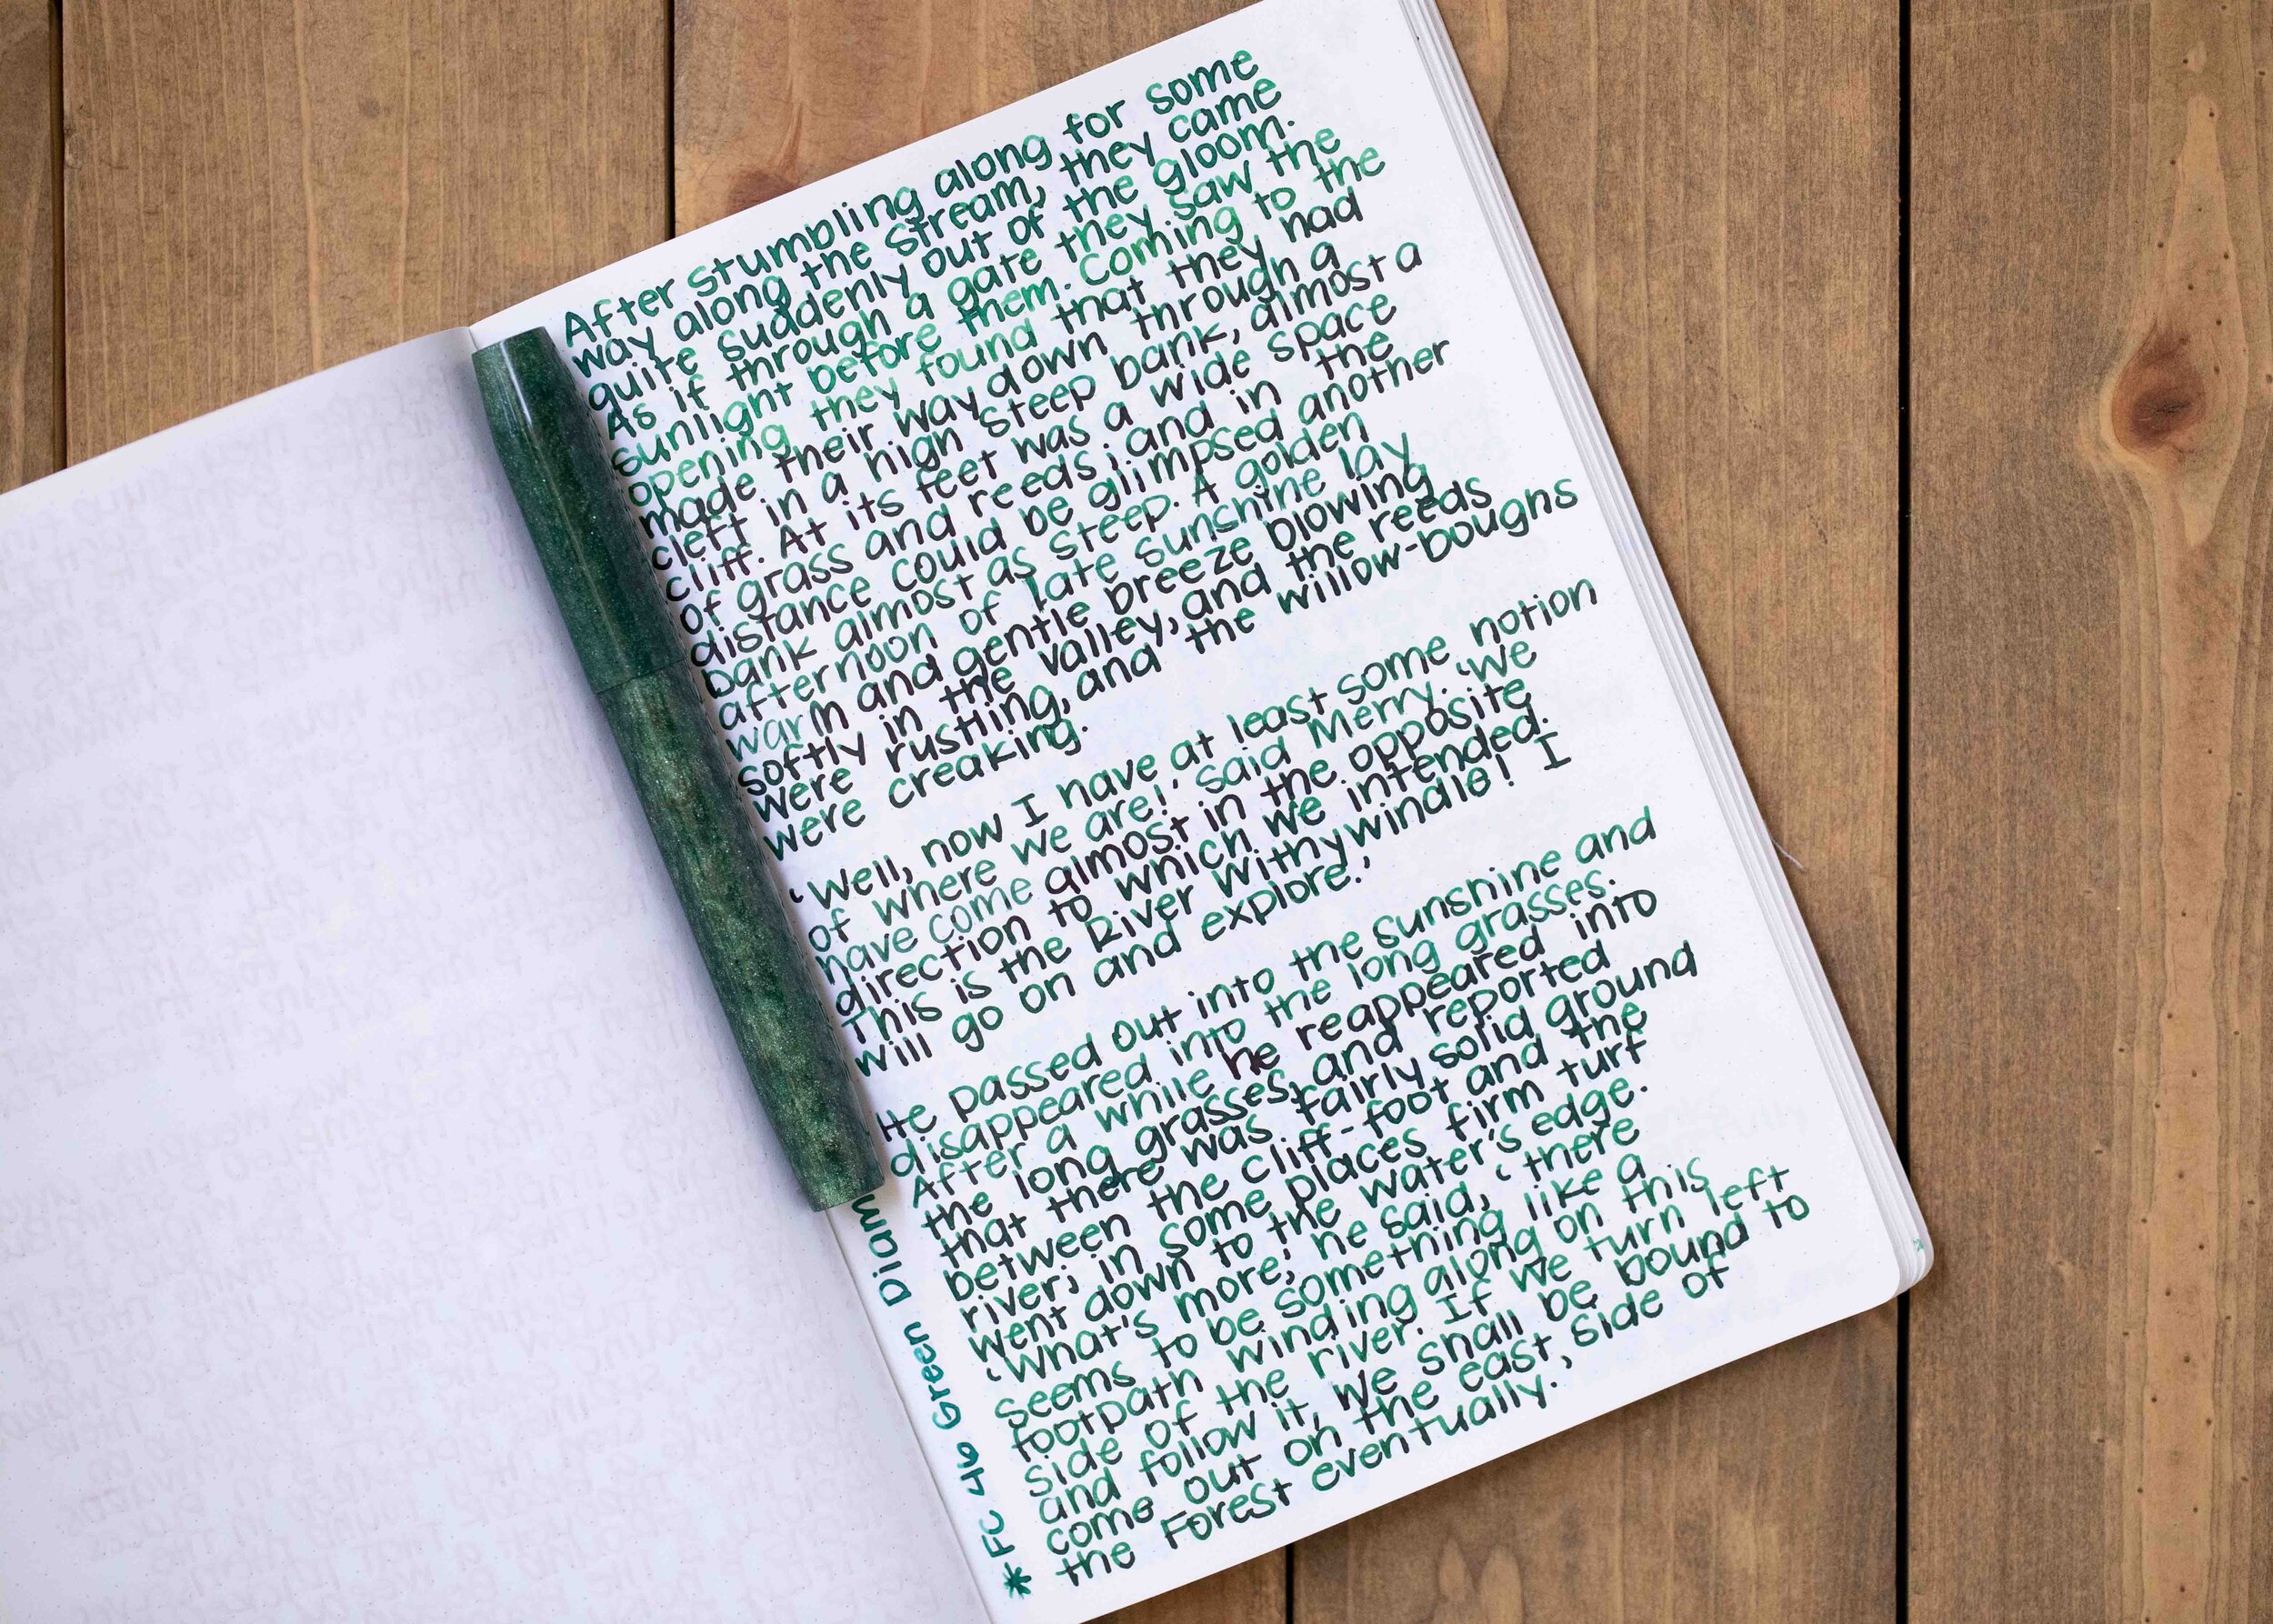 After stumbling along for some
way along the stream, they came
quite suddenly out of the gloom.
As if through a gate they saw the
sunlight before them. Coming to the
opening they found that they had
made their way down through a
cleft in a high steep bank, almost a
cliff. At its feet was a wide space
of grass and reeds; and in the
distance could be glimpsed another
bank almost as steep. A golden
afternoon of late sunshine lay
warm and gentle breeze blowing
softly in the valley, and the reeds
were rustling, and the willow-boughs
were creaking.
‘Well, now I have at least some notion
of where we are!’ said Merry. ‘We
have come almost in the opposite
direction to which we intended.
This is the River Withywindle! I
will go on and explore.’
He passed out into the sunshine and
disappeared into the long grasses.
After a while he reappeared into
the long grasses, and reported
that there was fairly solid ground
between the cliff-foot and the
river; in some places firm turf
went down to the water's edge.
‘What's more,’ he said, ‘there
seems to be something like a
footpath winding along on this
side of the river. If we turn left
and follow it, we shall be bound to
come out on the east, side of
the Forest eventually.’
* FC 46 Green Diam